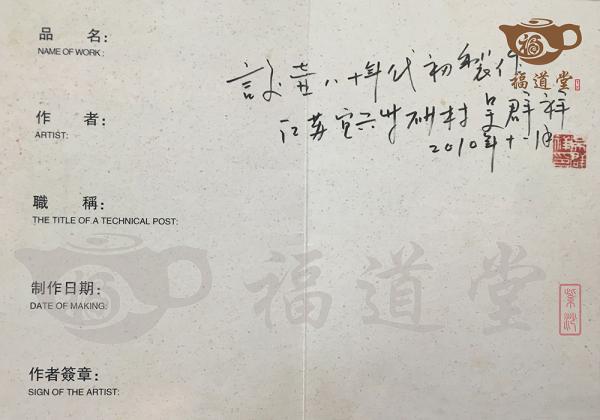 品 名:
NAME OF WORK:
該壶八十年代初製作
江苏宜兴 吴群祥
2010年十一月
作 者:
ARTIST:
職 稱:
THE TITLE OF A TECHNICAL POST:
制作日期:
DATE OF MAKING:
作者簽章:
SIGN OF THE ARTIST:
福道堂
福道堂
紫沙